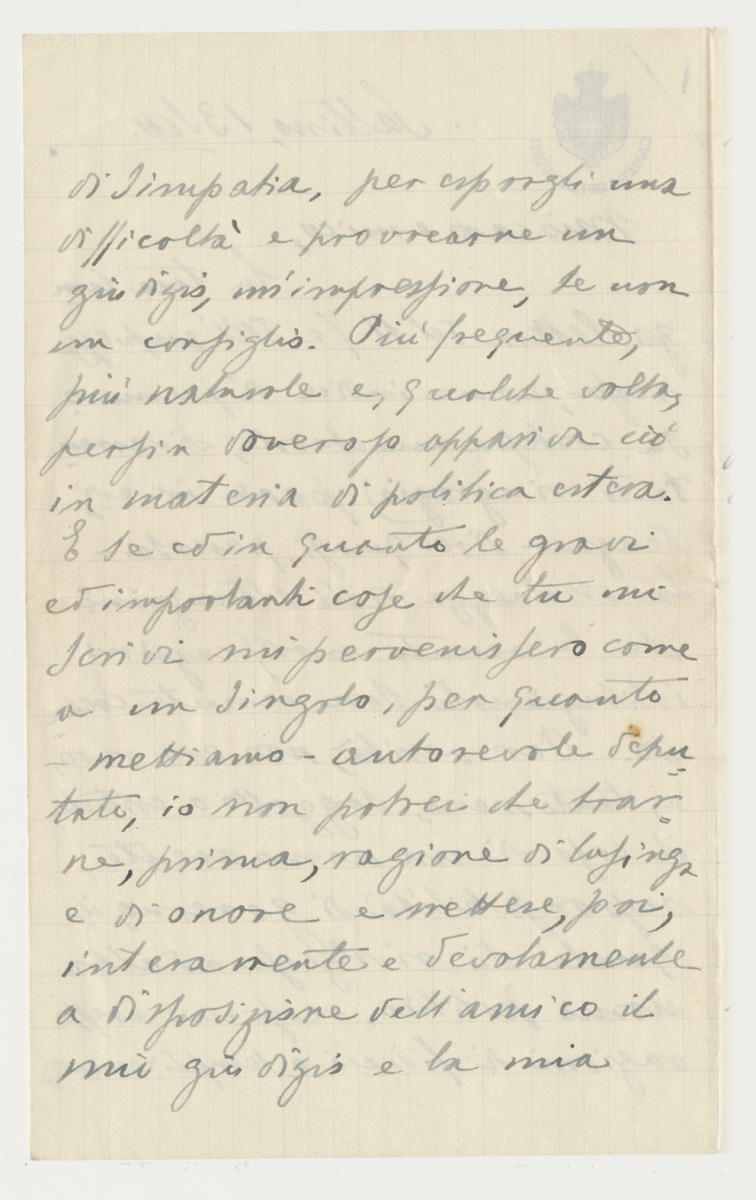 di simpatia, per esporgli una
difficoltà e provocarne un
giudizio, un'impressione, se non
un consiglio. Più frequente,
più naturale e, qualche volta,
persin doveroso appariva ciò
in materia di politica estera.
E se ed in quanto le gravi
ed importanti cose che tu mi
scrivi mi pervenissero come
a un singolo, per quanto
- mettiamo - autorevole depu
tato, io non potrei che trar=
ne, prima, ragione di lusinga
e di onore e mettere, poi,
interamente e devotamente
a disposizione dell'amico il
mio giudizio e la mia